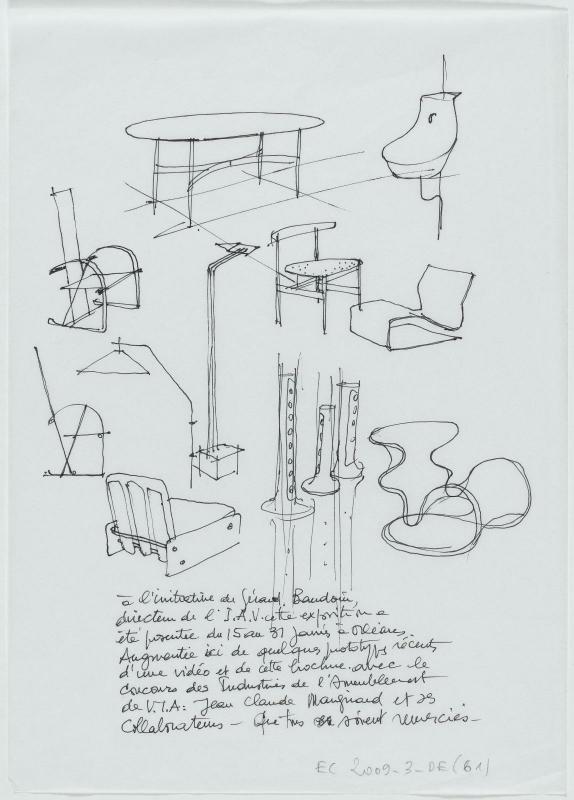 à l'initiative de Gérard Baudoin,
directeur de l'I.A.V. cette exposition a
été présentée du 15 au 31 janvier à Orléans,
Augmentée ici de quelques prototypes récents
d'une vidéo et de cette brochure. avec le
concours des Industries de l'Ameublement
de V.I.A: Jean Claude Maugirard et ses
Collaborateurs - Que tous en soient remerciés -
EC 2009-3-DE(61)